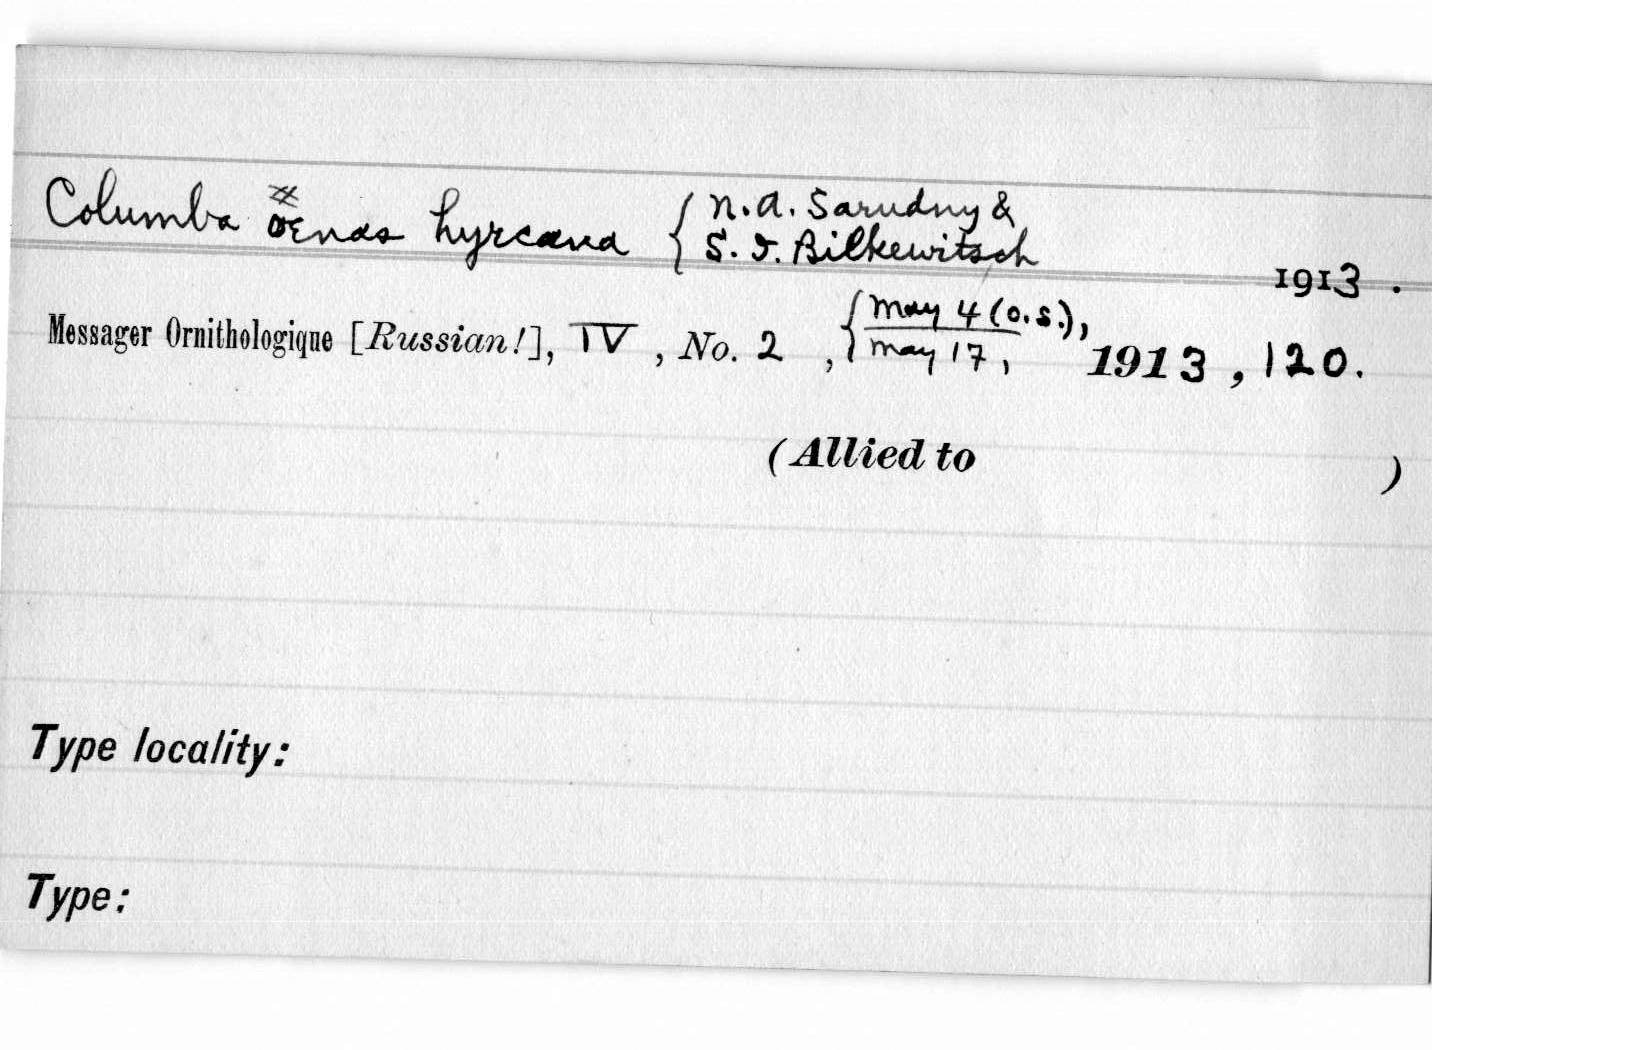 Columba oenas hyrcana { N. A. Sarudny &
S. I. Bilkewitsch
1913.
Messager Ornithologique [Russian!], IV, No. 2, { May 4 (o.s.),
May 17, 1913, 120.
(Allied to )
Type locality:
Type: